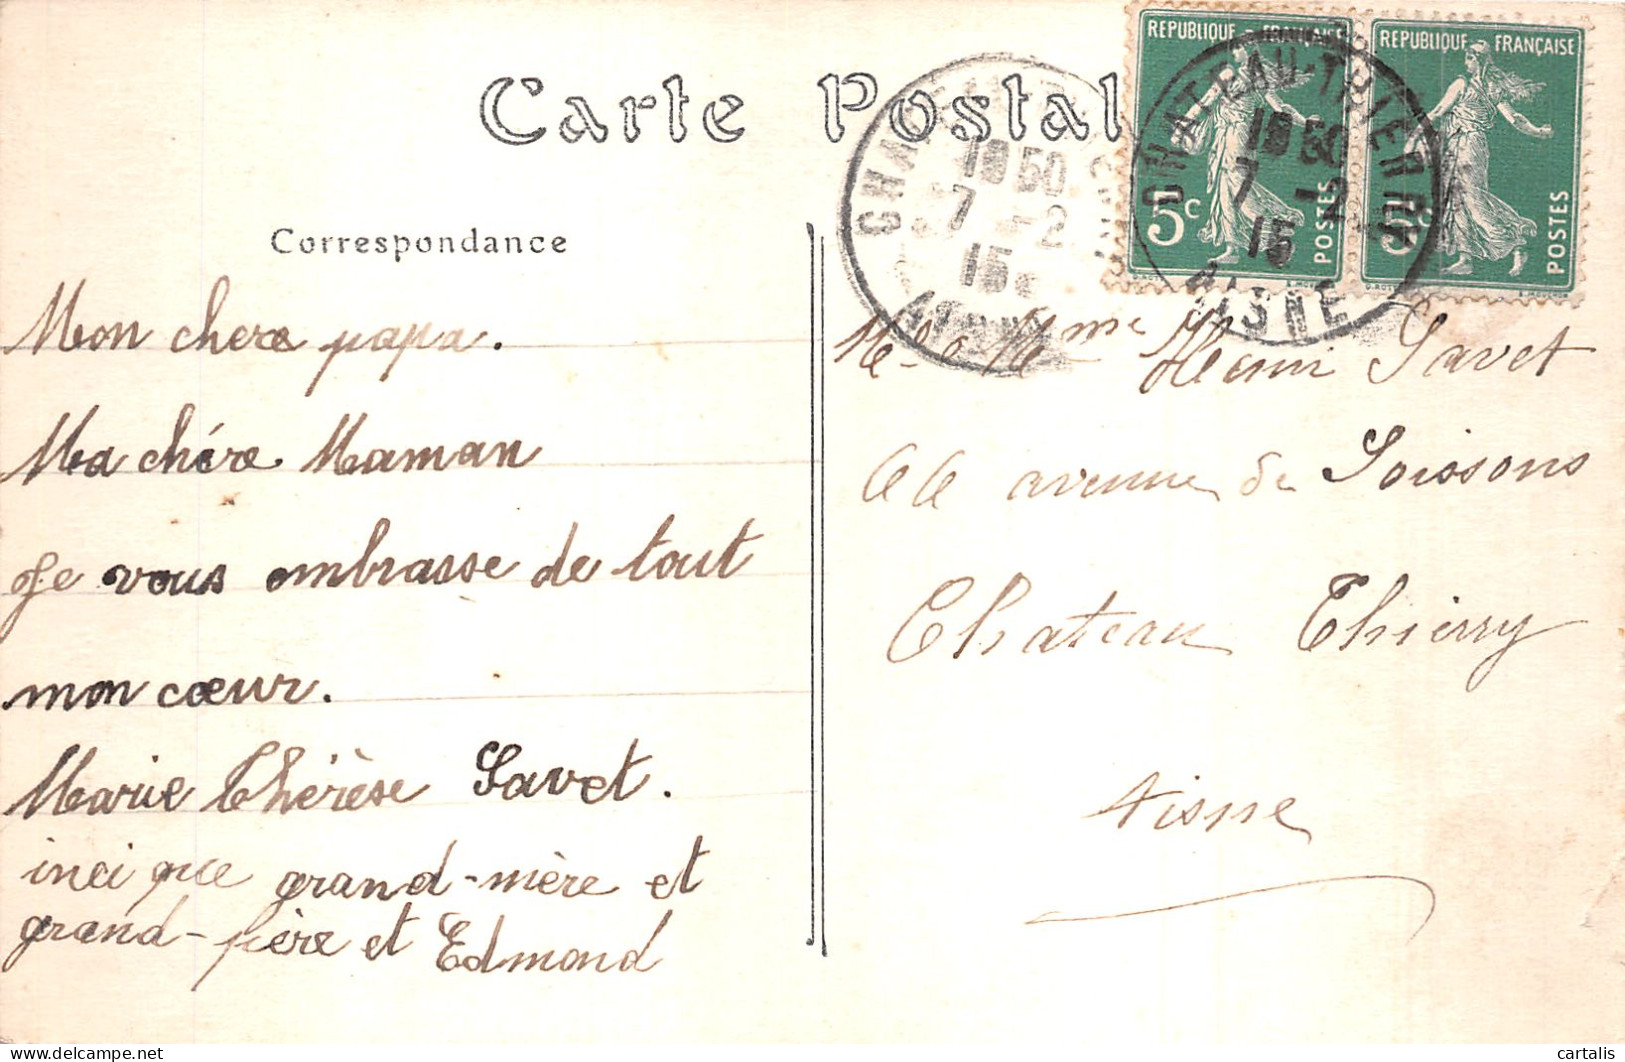 Carte Postal
REPUBLIQUE FRANÇAISE
5c
POSTES
REPUBLIQUE FRANÇAISE
5c
POSTES
CHATEAU-THIERRY
18 50
7 -2
15
AISNE
CHATEAU-THIERRY
18 50
7 -2
15
AISNE
Correspondance
Mon chere papa.
Ma chére Maman
Je vous embrasse de tout
mon cœur.
Marie Thérèse Savet.
inci que grand-mère et
grand-père et Edmond
Mr & Mme Henri Savet
66 avenue de Soissons
Chateau Thierry
Aisne
cartalis